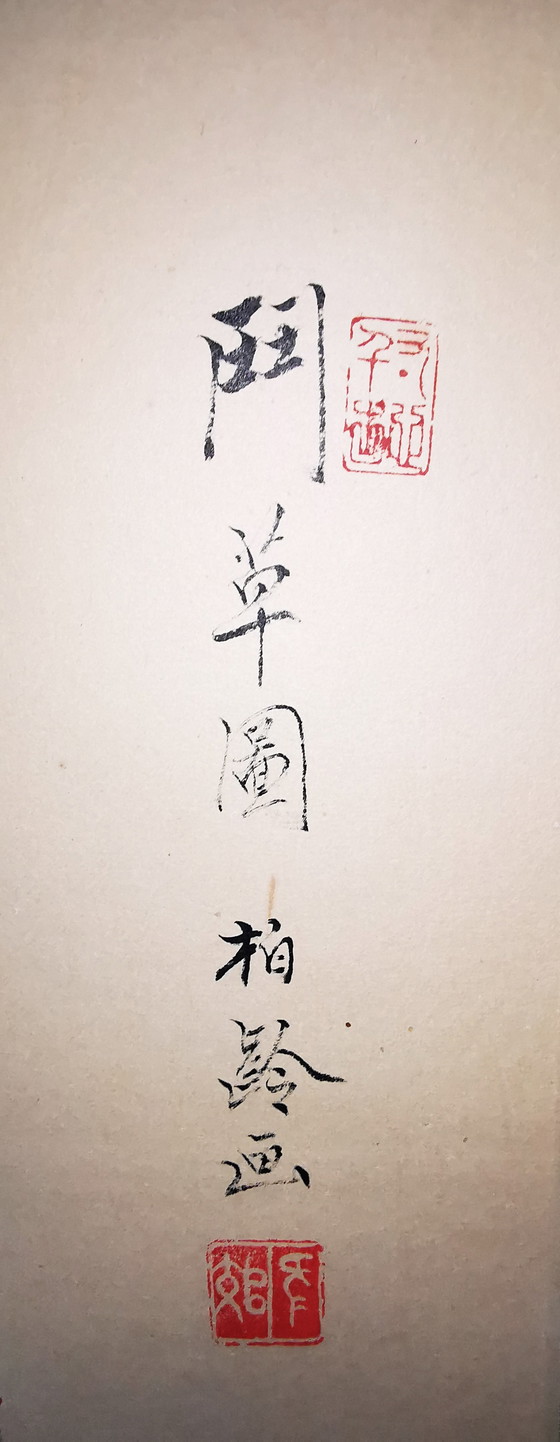 鬥草圖
柏齡画